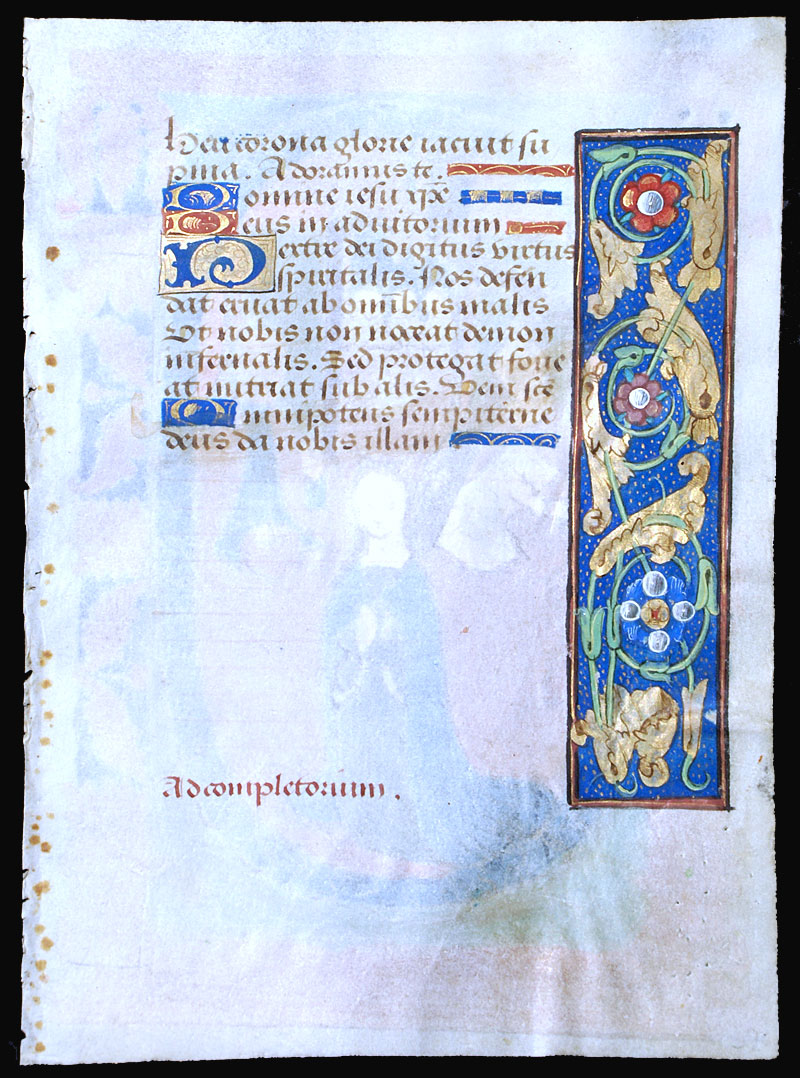 Heu corona glorie iacuit su
pina. Adoramus te.
Domine iesu xpe
Deus in adiutorium
Dextre dei digitus virtus
spiritalis. Nos defen
dat eruat ab omibus malis
Ut nobis non noceat demon
infernalis. Sed protegat foue
at nutriat sub alis. Veni scē
Omnipotens sempiterne
deus da nobis illam
Ad completorium.